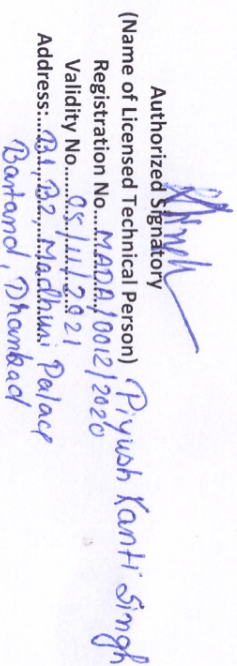 Authorized Signatory
(Name of Licensed Technical Person) Piyush Kanti Singh
Registration No....MADA/0012/2020
Validity No....05/11/2021
Address:...B1, B2, Madhuri Palace
Bartand, Dhanbad